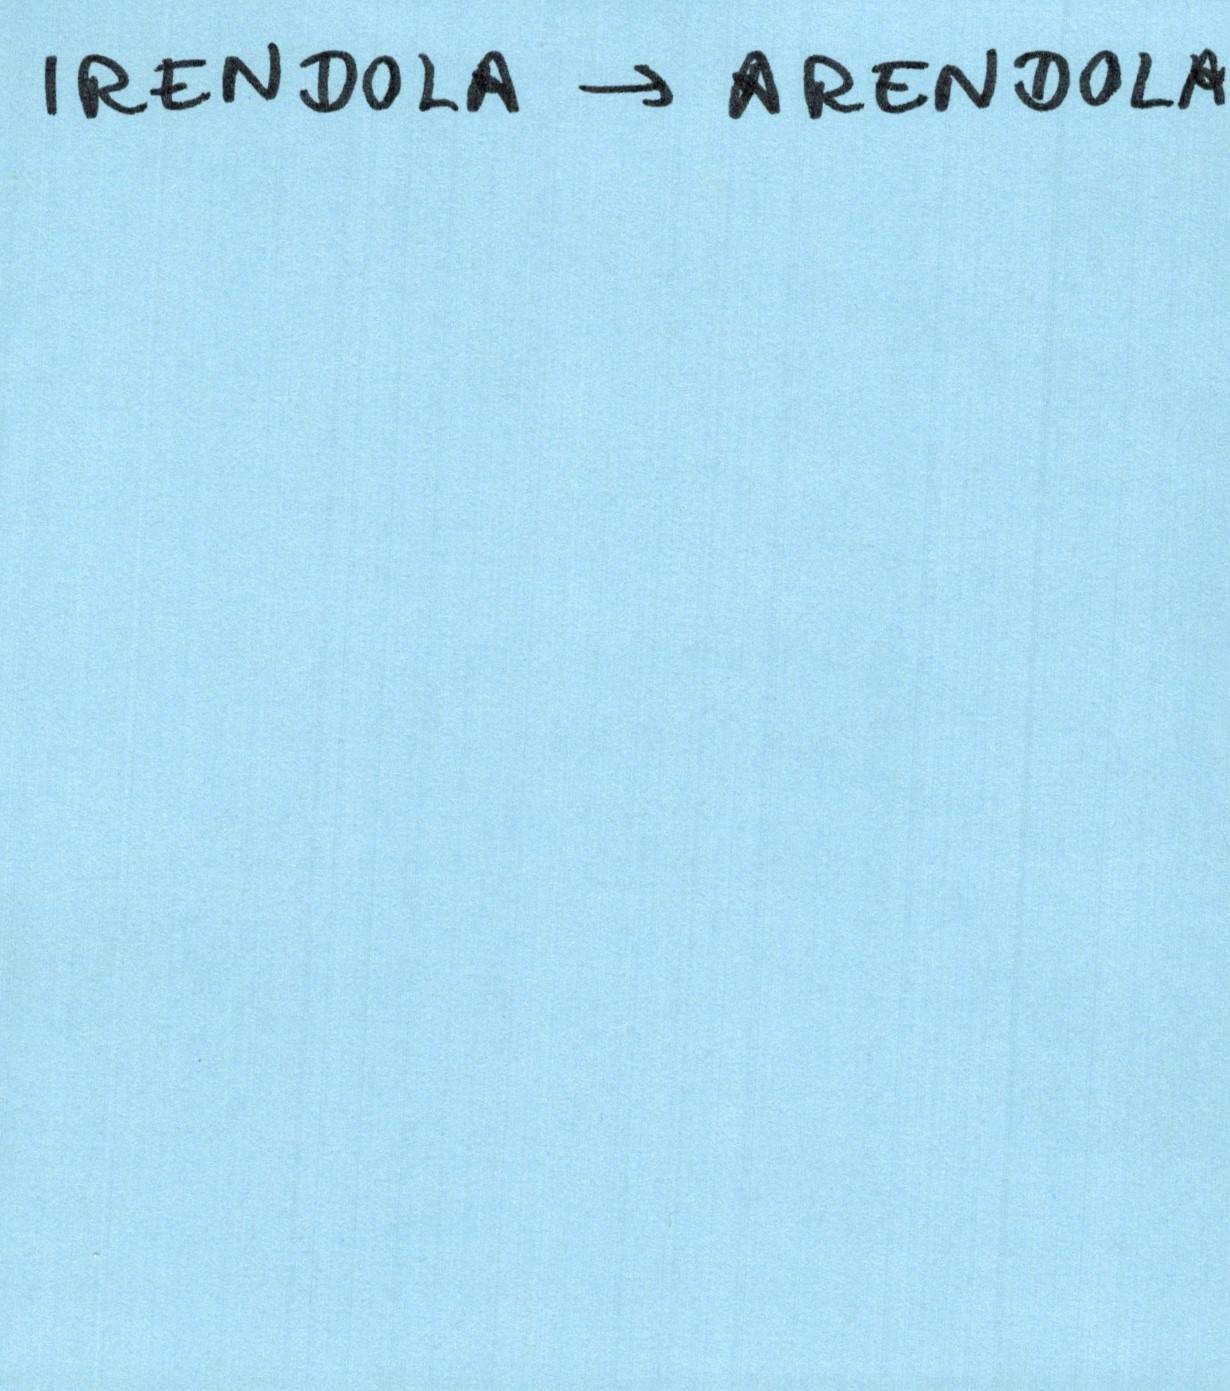 IRENDOLA → ARENDOLA